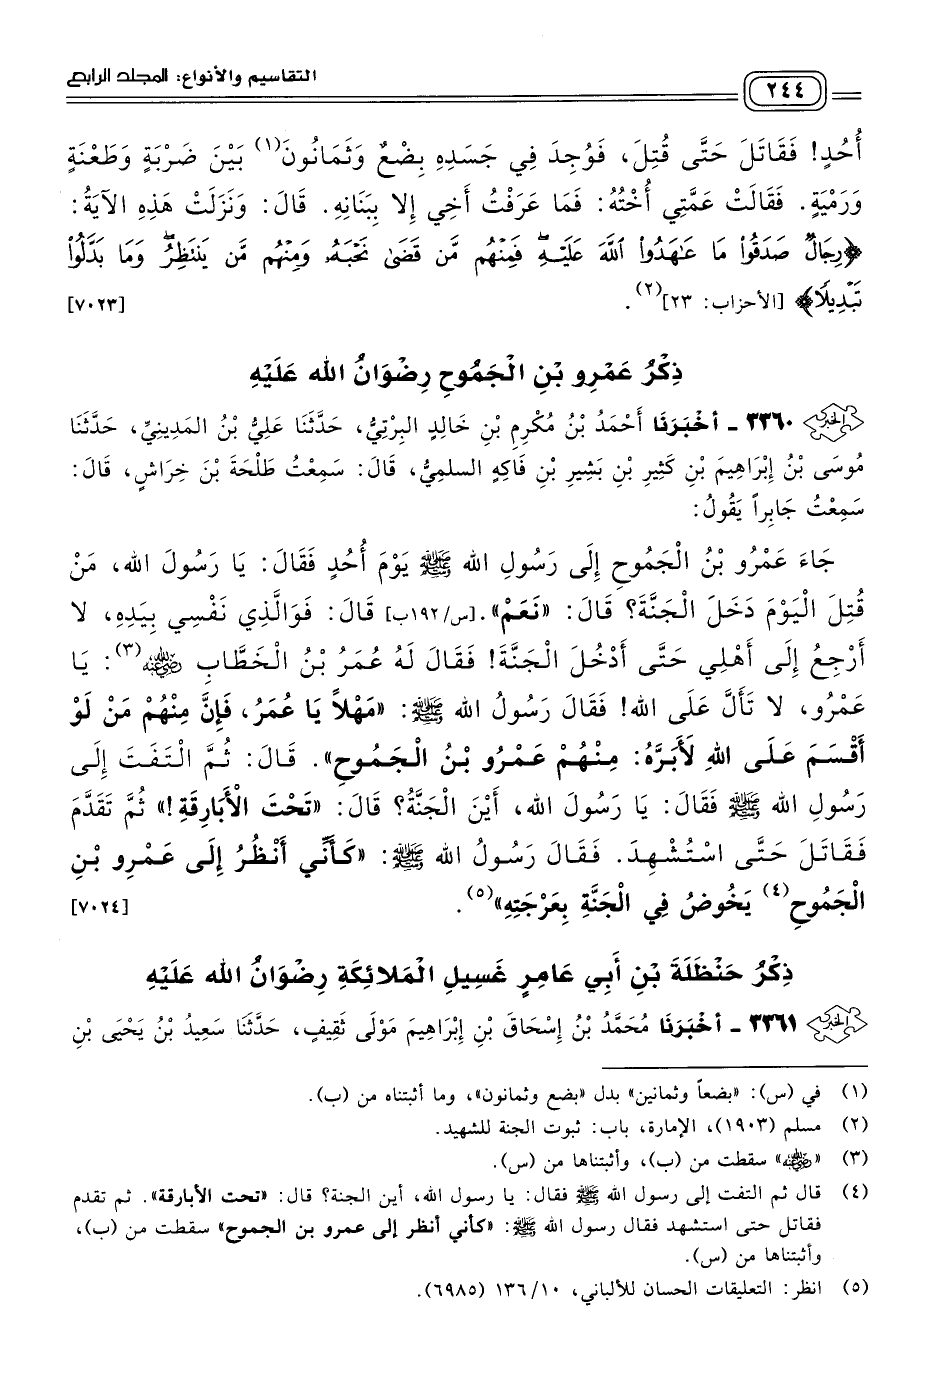 ٢٤٤ التقاسيم والأنواع: المجلد الرابع
أُحُدٍ! فَقَاتَلَ حَتَّى قُتِلَ، فَوُجِدَ فِي جَسَدِهِ بِضْعٌ وَثَمَانُونَ(١) بَيْنَ ضَرْبَةٍ وَطَعْنَةٍ
وَرَمْيَةٍ. فَقَالَتْ عَمَّتِي أُخْتُهُ: فَمَا عَرَفْتُ أَخِي إِلا بِبَنَانِهِ. قَالَ: وَنَزَلَتْ هَذِهِ الآيَةُ:
﴿رِجَالٌ صَدَقُواْ مَا عَٰهَدُواْ ٱللَّهَ عَلَيْهِۖ فَمِنْهُم مَّن قَضَىٰ نَحْبَهُۥ وَمِنْهُم مَّن يَنتَظِرُۖ وَمَا بَدَّلُواْ
تَبْدِيلًا﴾ [الأحزاب: ٢٣](٢). [٧٠٢٣]
ذِكْرُ عَمْرِو بْنِ الْجَمُوحِ رِضْوَانُ الله عَلَيْهِ
الخبر ٣٣٦٠ - أَخْبَرَنَا أَحْمَدُ بْنُ مُكْرِمِ بْنِ خَالِدٍ البِرْتِيُّ، حَدَّثَنَا عَلِيُّ بْنُ المَدِينِيِّ، حَدَّثَنَا
مُوسَى بْنُ إِبْرَاهِيمَ بْنِ كَثِيرِ بْنِ بَشِيرِ بْنِ فَاكِهٍ السلميُّ، قَالَ: سَمِعْتُ طَلْحَةَ بْنَ خِرَاشٍ، قَالَ:
سَمِعْتُ جَابِراً يَقُولُ:
جَاءَ عَمْرُو بْنُ الْجَمُوحِ إِلَى رَسُولِ الله ﷺ يَوْمَ أُحُدٍ فَقَالَ: يَا رَسُولَ الله، مَنْ
قُتِلَ الْيَوْمَ دَخَلَ الْجَنَّةَ؟ قَالَ: «نَعَمْ». [س/١٩٢ب] قَالَ: فَوَالَّذِي نَفْسِي بِيَدِهِ، لا
أَرْجِعُ إِلَى أَهْلِي حَتَّى أَدْخُلَ الْجَنَّةَ! فَقَالَ لَهُ عُمَرُ بْنُ الْخَطَّابِ رضي الله عنه(٣): يَا
عَمْرُو، لا تَأَلَّ عَلَى الله! فَقَالَ رَسُولُ الله ﷺ: «مَهْلاً يَا عُمَرُ، فَإِنَّ مِنْهُمْ مَنْ لَوْ
أَقْسَمَ عَلَى اللهِ لأَبَرَّهُ: مِنْهُمْ عَمْرُو بْنُ الْجَمُوحِ». قَالَ: ثُمَّ الْتَفَتَ إِلَى
رَسُولِ الله ﷺ فَقَالَ: يَا رَسُولَ الله، أَيْنَ الْجَنَّةُ؟ قَالَ: «تَحْتَ الْأَبَارِقَةِ!» ثُمَّ تَقَدَّمَ
فَقَاتَلَ حَتَّى اسْتُشْهِدَ. فَقَالَ رَسُولُ الله ﷺ: «كَأَنِّي أَنْظُرُ إِلَى عَمْرِو بْنِ
الْجَمُوحِ(٤) يَخُوضُ فِي الْجَنَّةِ بِعَرْجَتِهِ»(٥). [٧٠٢٤]
ذِكْرُ حَنْظَلَةَ بْنِ أَبِي عَامِرٍ غَسِيلِ الْمَلائِكَةِ رِضْوَانُ الله عَلَيْهِ
الخبر ٣٣٦١ - أَخْبَرَنَا مُحَمَّدُ بْنُ إِسْحَاقَ بْنِ إِبْرَاهِيمَ مَوْلَى ثَقِيفٍ، حَدَّثَنَا سَعِيدُ بْنُ يَحْيَى بْنِ
(١) في (س): «بضعاً وثمانين» بدل «بضع وثمانون»، وما أثبتناه من (ب).
(٢) مسلم (١٩٠٣)، الإمارة، باب: ثبوت الجنة للشهيد.
(٣) «رضي الله عنه» سقطت من (ب)، وأثبتناها من (س).
(٤) قال ثم التفت إلى رسول الله ﷺ فقال: يا رسول الله، أين الجنة؟ قال: «تحت الأبارقة». ثم تقدم
فقاتل حتى استشهد فقال رسول الله ﷺ: «كأني أنظر إلى عمرو بن الجموح» سقطت من (ب)،
وأثبتناها من (س).
(٥) انظر: التعليقات الحسان للألباني، ١٣٦/١٠ (٦٩٨٥).